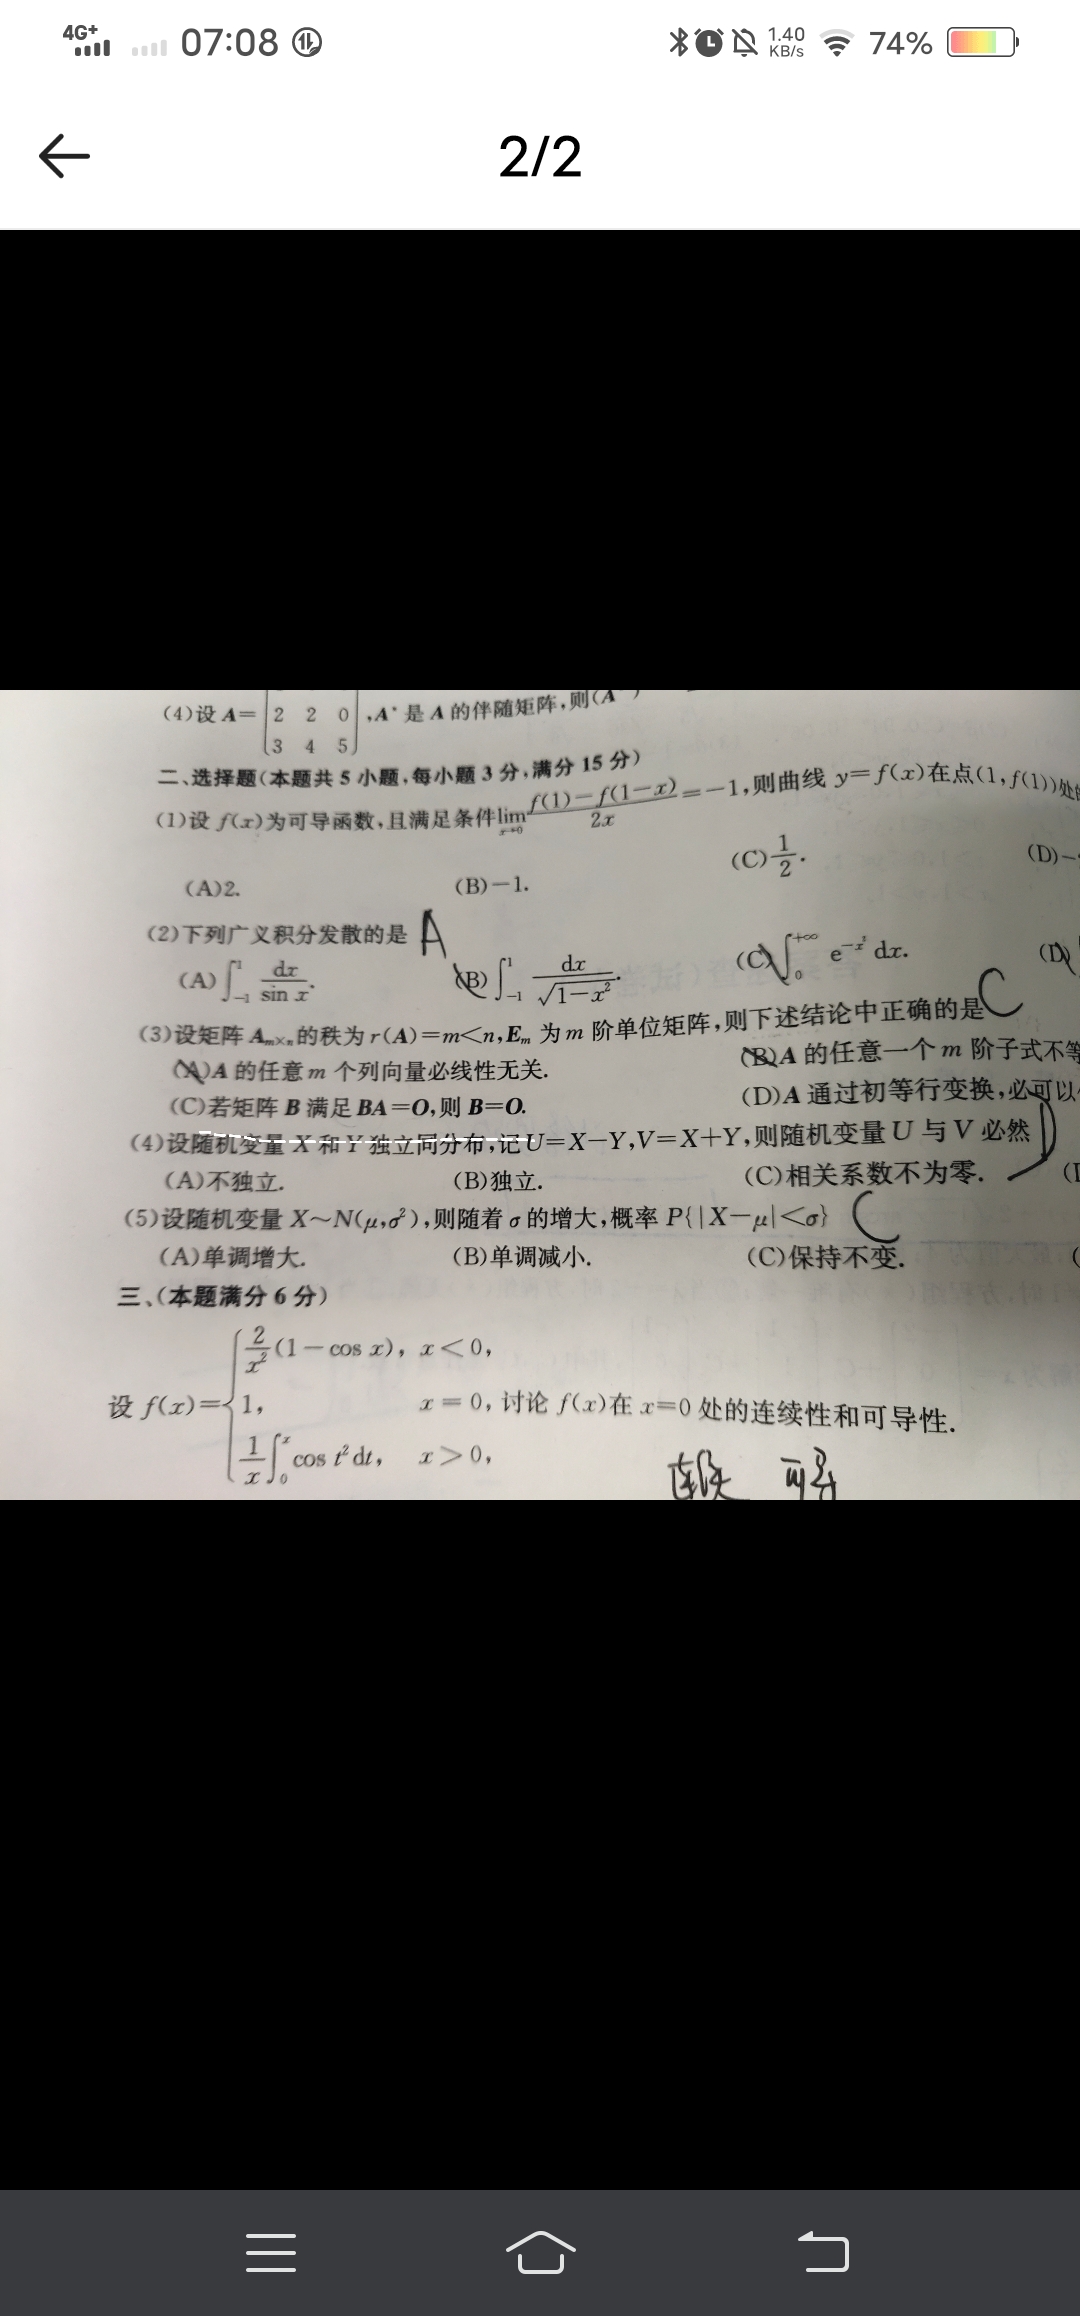 4G+ 07:08 1.40 KB/s 74%
2/2
(4)设 A= 2 2 0 ,A* 是 A 的伴随矩阵,则(A
3 4 5
二、选择题(本题共 5 小题,每小题 3 分,满分 15 分)
(1)设 f(x)为可导函数,且满足条件lim x→0 f(1)-f(1-x) / 2x =-1,则曲线 y=f(x)在点(1,f(1))处的
(A)2. (B)-1. (C)1/2. (D)-
(2)下列广义积分发散的是 A
(A)∫_{-1}^{1} dx/sin x. (B)∫_{-1}^{1} dx/√(1-x²). (C)∫_{0}^{+∞} e^{-x²} dx. (D)
(3)设矩阵 A_{m×n}的秩为 r(A)=m<n,E_m 为 m 阶单位矩阵,则下述结论中正确的是 C
(A)A 的任意 m 个列向量必线性无关. (B)A 的任意一个 m 阶子式不等
(C)若矩阵 B 满足 BA=O,则 B=O. (D)A 通过初等行变换,必可以
(4)设随机变量 X 和 Y 独立同分布,记 U=X-Y,V=X+Y,则随机变量 U 与 V 必然 D
(A)不独立. (B)独立. (C)相关系数不为零.
(5)设随机变量 X~N(μ,σ²),则随着 σ 的增大,概率 P{|X-μ|<σ} C
(A)单调增大. (B)单调减小. (C)保持不变. (
三、(本题满分 6 分)
2/x²(1-cos x), x<0,
设 f(x)= 1, x=0, 讨论 f(x)在 x=0 处的连续性和可导性.
1/x ∫_{0}^{x} cos t² dt, x>0,
连续 可导